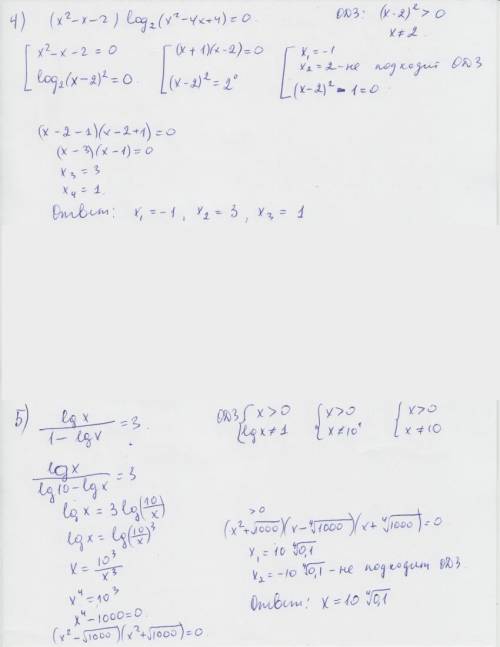 4) (x² - x - 2) log₂(x² - 4x + 4) = 0. ОДЗ: (x - 2)² > 0
x ≠ 2
[ x² - x - 2 = 0 [ (x + 1)(x - 2) = 0 [ x₁ = -1
x₂ = 2 - не подходит ОДЗ
log₂(x - 2)² = 0. (x - 2)² = 2⁰ (x - 2)² - 1 = 0
(x - 2 - 1)(x - 2 + 1) = 0
(x - 3)(x - 1) = 0
x₃ = 3
x₄ = 1.
Ответ: x₁ = -1, x₂ = 3, x₃ = 1
5) lg x / (1 - lg x) = 3. ОДЗ { x > 0 { x > 0 { x > 0
lg x ≠ 1 x ≠ 10¹ x ≠ 10
lg x / (lg 10 - lg x) = 3
lg x = 3 lg(10/x)
lg x = lg(10/x)³
x = 10³/x³
x⁴ = 10³
x⁴ - 1000 = 0.
(x² - √1000)(x² + √1000) = 0.
> 0
(x² + √1000)(x - ⁴√1000)(x + ⁴√1000) = 0
x₁ = 10 ⁴√0,1
x₂ = -10 ⁴√0,1 - не подходит ОДЗ.
Ответ: x = 10 ⁴√0,1